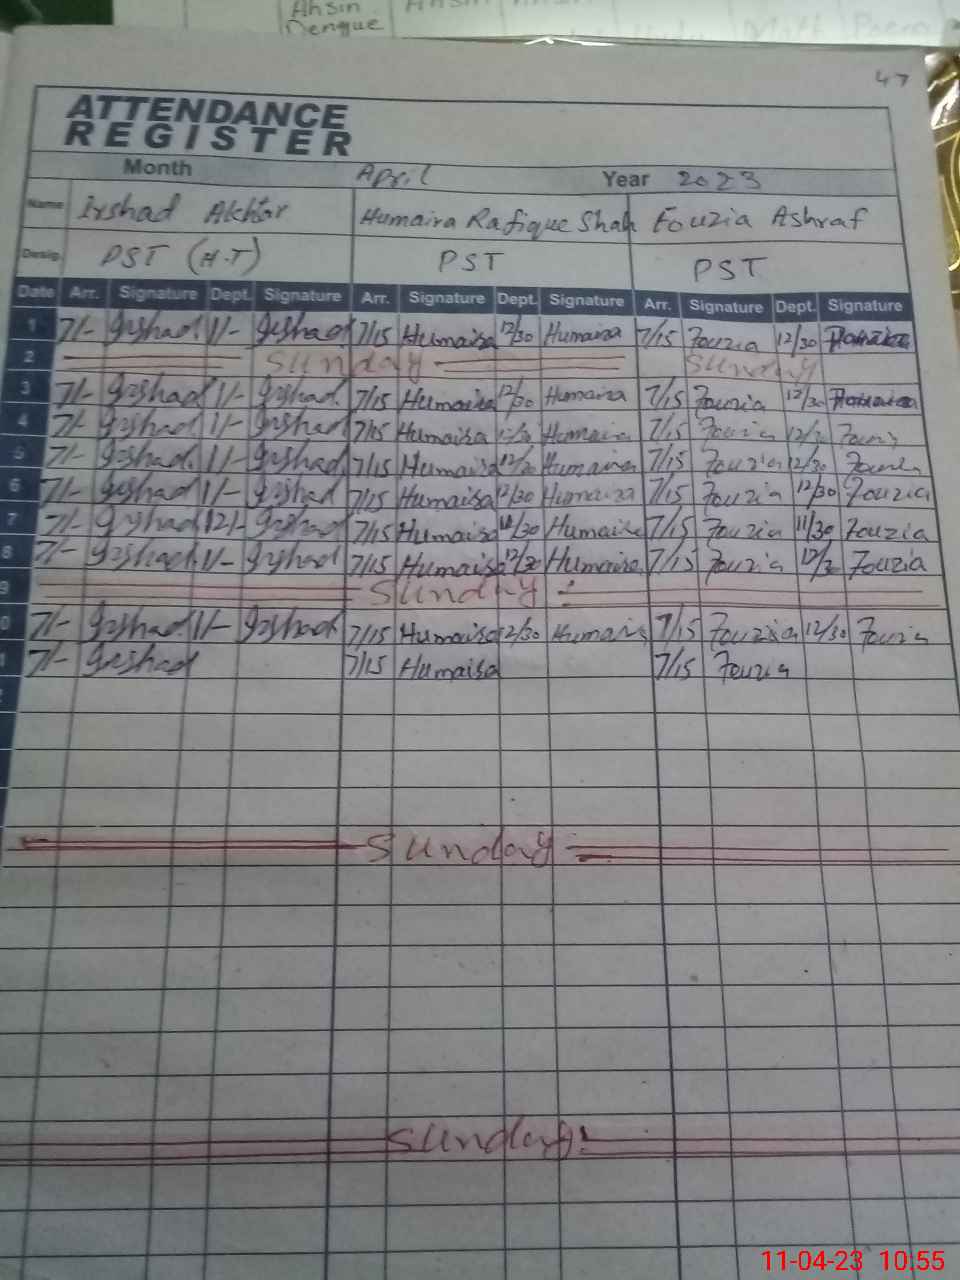 Ahsin
Dengue
47
ATTENDANCE
REGISTER
Month April Year 2023
Name Irshad Akhtar Humaira Rafique Shah Fouzia Ashraf
Desig. PST (H.T) PST PST
Date Arr. Signature Dept. Signature Arr. Signature Dept. Signature Arr. Signature Dept. Signature
1 7/- Irshad 1/- Irshad 7/15 Humaira 12/30 Humaira 7/15 Fouzia 12/30
2 Sunday Sunday
3 7/- Irshad 1/- Irshad 7/15 Humaira 12/30 Humaira 7/15 Fouzia 12/30
4 7/- Irshad 1/- Irshad 7/15 Humaira 12/30 Humaira 7/15 Fouzia 12/30 Fouzia
5 7/- Irshad 1/- Irshad 7/15 Humaira 12/30 Humaira 7/15 Fouzia 12/30 Fouzia
6 7/- Irshad 1/- Irshad 7/15 Humaira 12/30 Humaira 7/15 Fouzia 12/30 Fouzia
7 7/- Irshad 12/- Irshad 7/15 Humaira 11/30 Humaira 7/15 Fouzia 11/30 Fouzia
8 7/- Irshad 1/- Irshad 7/15 Humaira 12/30 Humaira 7/15 Fouzia 12/30 Fouzia
9 Sunday
0 7/- Irshad 1/- Irshad 7/15 Humaira 12/30 Humaira 7/15 Fouzia 12/30 Fouzia
1 7/- Irshad 7/15 Humaira 7/15 Fouzia
Sunday
Sunday
11-04-23 10:55